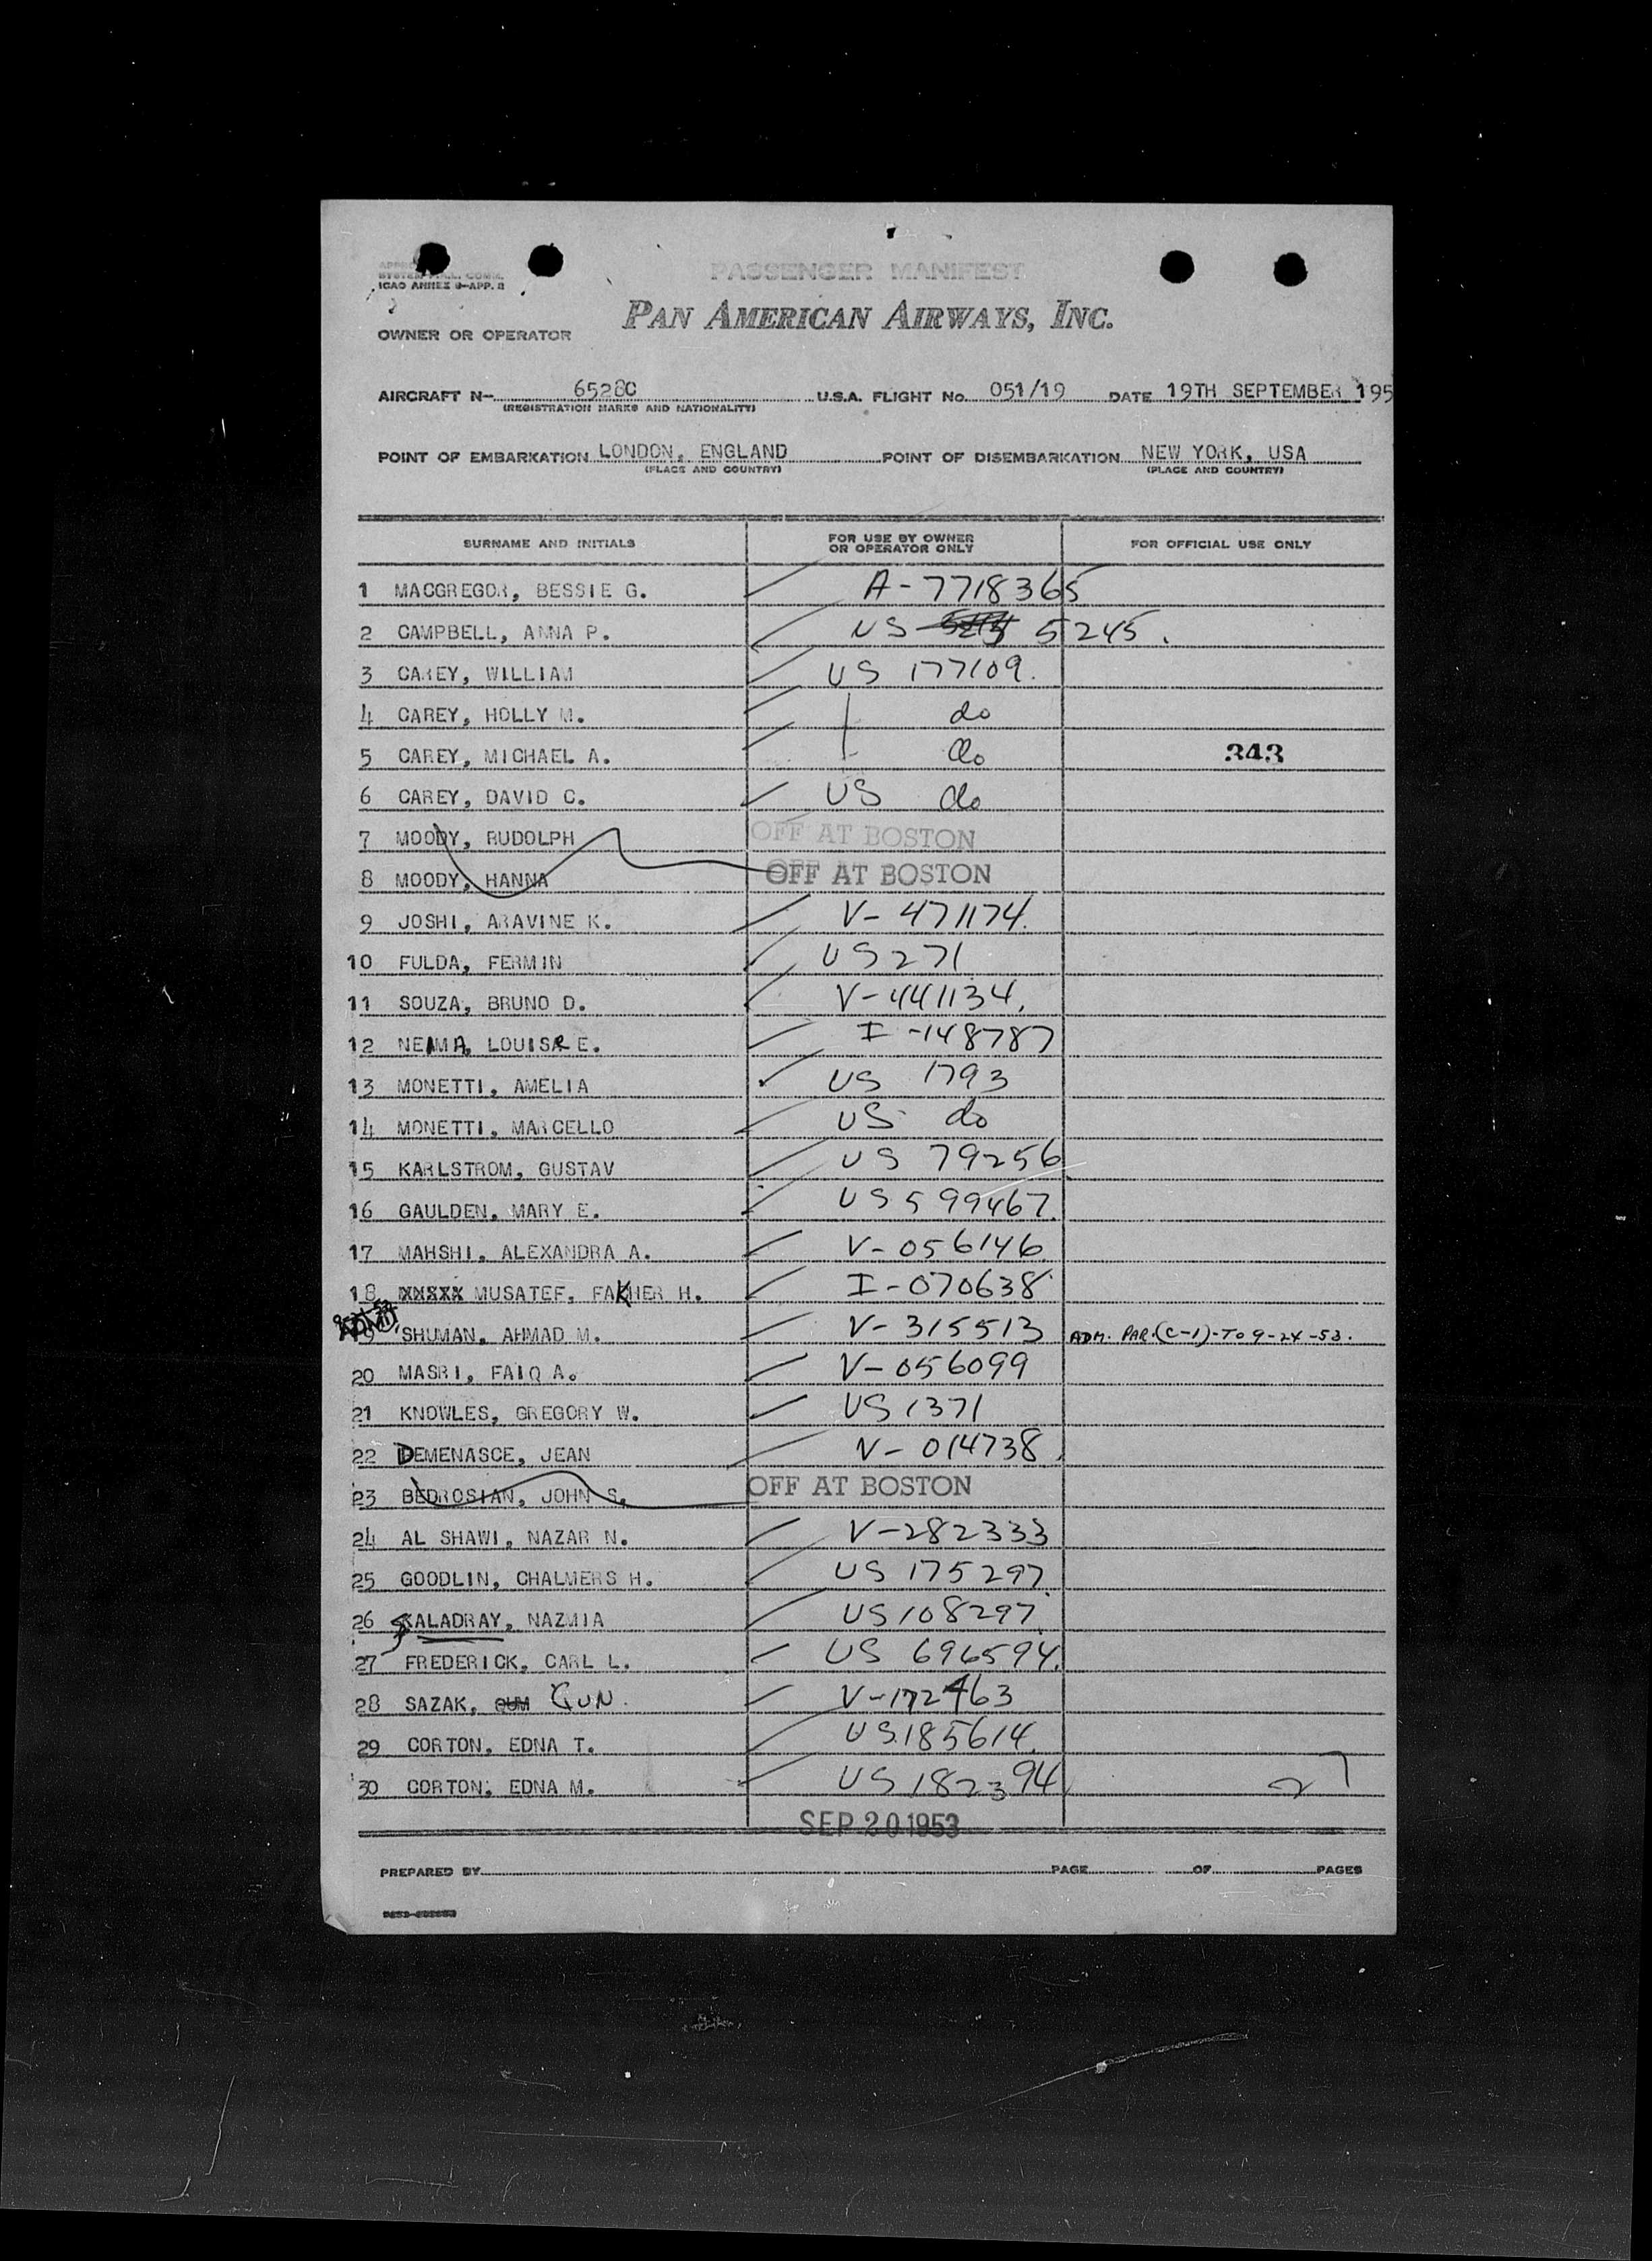 PASSENGER MANIFEST
ICAO ANNEX 9-APP. 2
PAN AMERICAN AIRWAYS, INC.
OWNER OR OPERATOR
AIRCRAFT N- 6528C U.S.A. FLIGHT No. 051/19 DATE 19TH SEPTEMBER 195
(REGISTRATION MARKS AND NATIONALITY)
POINT OF EMBARKATION LONDON, ENGLAND POINT OF DISEMBARKATION NEW YORK, USA
(PLACE AND COUNTRY) (PLACE AND COUNTRY)
SURNAME AND INITIALS FOR USE BY OWNER OR OPERATOR ONLY FOR OFFICIAL USE ONLY
1 MACGREGOR, BESSIE G. A-7718365
2 CAMPBELL, ANNA P. US 5245.
3 CAREY, WILLIAM US 177109.
4 CAREY, HOLLY M. do
5 CAREY, MICHAEL A. do 343
6 CAREY, DAVID C. US do
7 MOODY, RUDOLPH OFF AT BOSTON
8 MOODY, HANNA OFF AT BOSTON
9 JOSHI, ARAVINE K. V-471174.
10 FULDA, FERMIN US 271
11 SOUZA, BRUNO D. V-441134.
12 NEAMA, LOUISE E. I-148787
13 MONETTI, AMELIA US 1793
14 MONETTI, MARCELLO US do
15 KARLSTROM, GUSTAV US 79256
16 GAULDEN, MARY E. US 599467.
17 MAHSHI, ALEXANDRA A. V-056146
18 XXXXX MUSATEF, FAKHER H. I-070638
19 SHUMAN, AHMAD M. V-315513 ADM. PAR. (C-1)-TO 9-24-53.
20 MASRI, FAIQ A. V-056099
21 KNOWLES, GREGORY W. US 1371
22 DEMENASCE, JEAN V-014738
23 BEDROSIAN, JOHN S. OFF AT BOSTON
24 AL SHAWI, NAZAR N. V-282333
25 GOODLIN, CHALMERS H. US 175297
26 KALADRAY, NAZMIA US 108297
27 FREDERICK, CARL L. US 696594.
28 SAZAK, GUM GUN. V-172463
29 CORTON, EDNA T. US 185614
30 CORTON, EDNA M. US 182394 27
SEP 20 1953
PREPARED BY PAGE OF PAGES